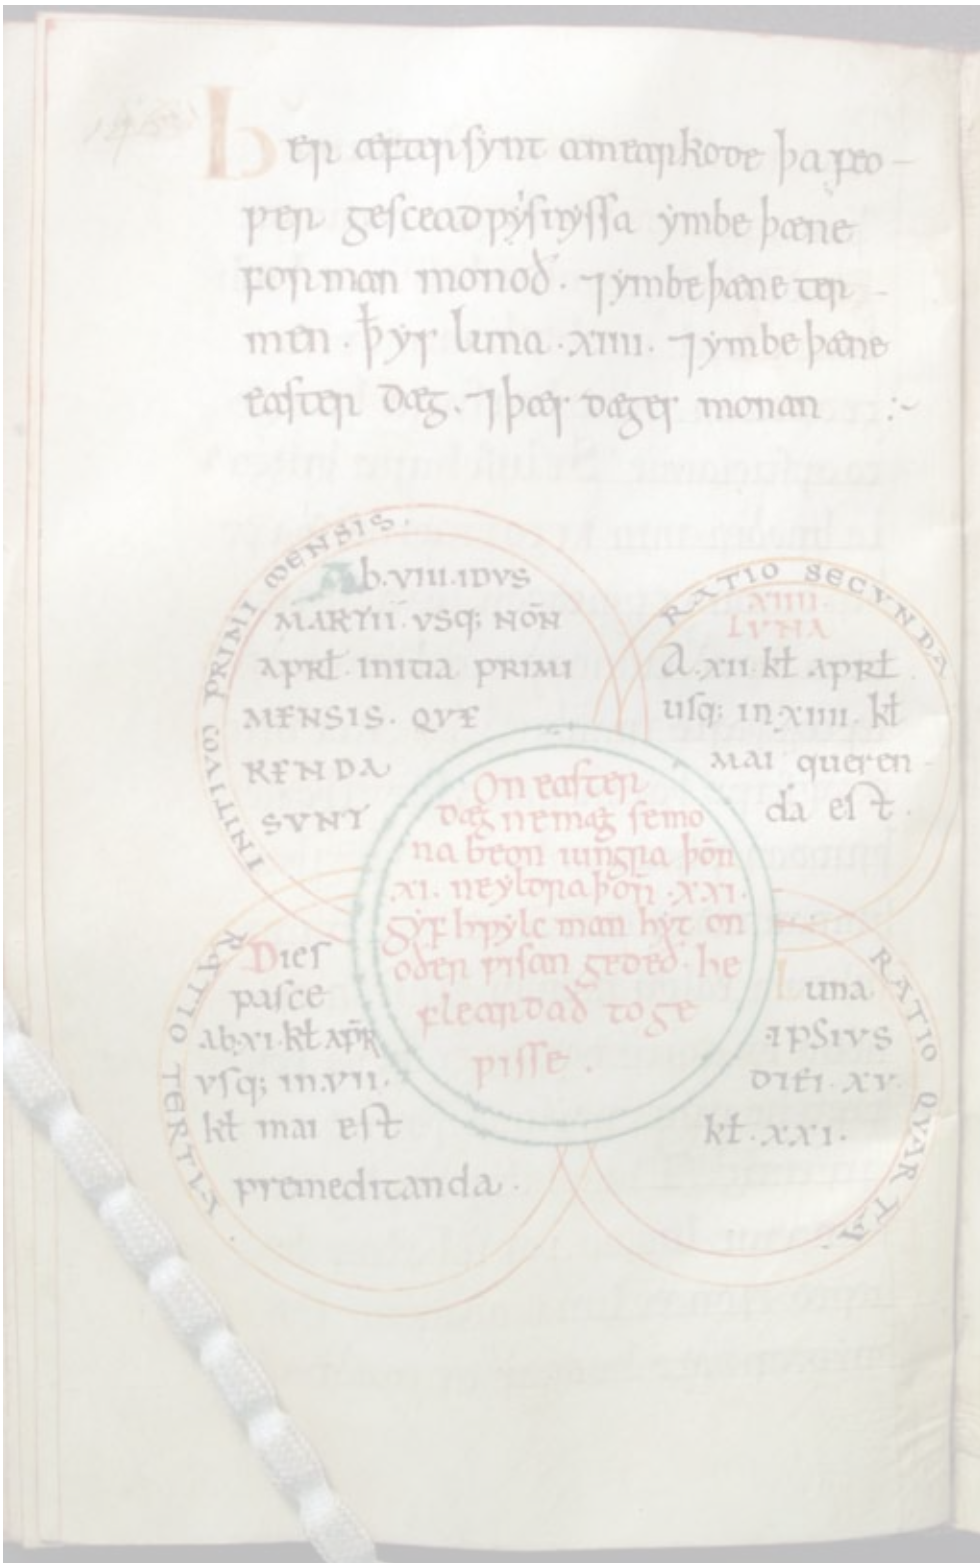 her æfter synt amearkode þa feo-
wer gesceadwẏsnẏssa ẏmbe þæne
forman monoð. ⁊ ẏmbe þæne ter-
men. ꝥ ẏs luna .xiiii. ⁊ ẏmbe þæne
easter dæg. ⁊ þæs dæges monan :~
INITIUM PRIMI MENSIS.
Ab .VIII. IDVS
MARTII. VSQ; NOÑ
APRƚ. INITIA PRIMI
MENSIS. QVE
RENDA
SVNT
RATIO SECVNDA
XIIII.
LVNA
A .XII. kƚ APRƚ.
usq; in .XIIII. kƚ
MAI queren-
da est.
On easter
dæg ne mæg se mo
na beon iun̄gra þoñ
.XI. ne ẏldra þoñ .XXI.
gẏf hwẏlc man hẏt on
oðer wisan gedeð. he
fleardað to ge
wisse.
RATIO TERTIA.
Dies
pasce
ab .XI. kƚ APR̄
vsq; in .VII.
kƚ mai est
premeditanda.
RATIO QUARTA.
Luna
IPSIVS
DIEI. XV.
kƚ. XXI.